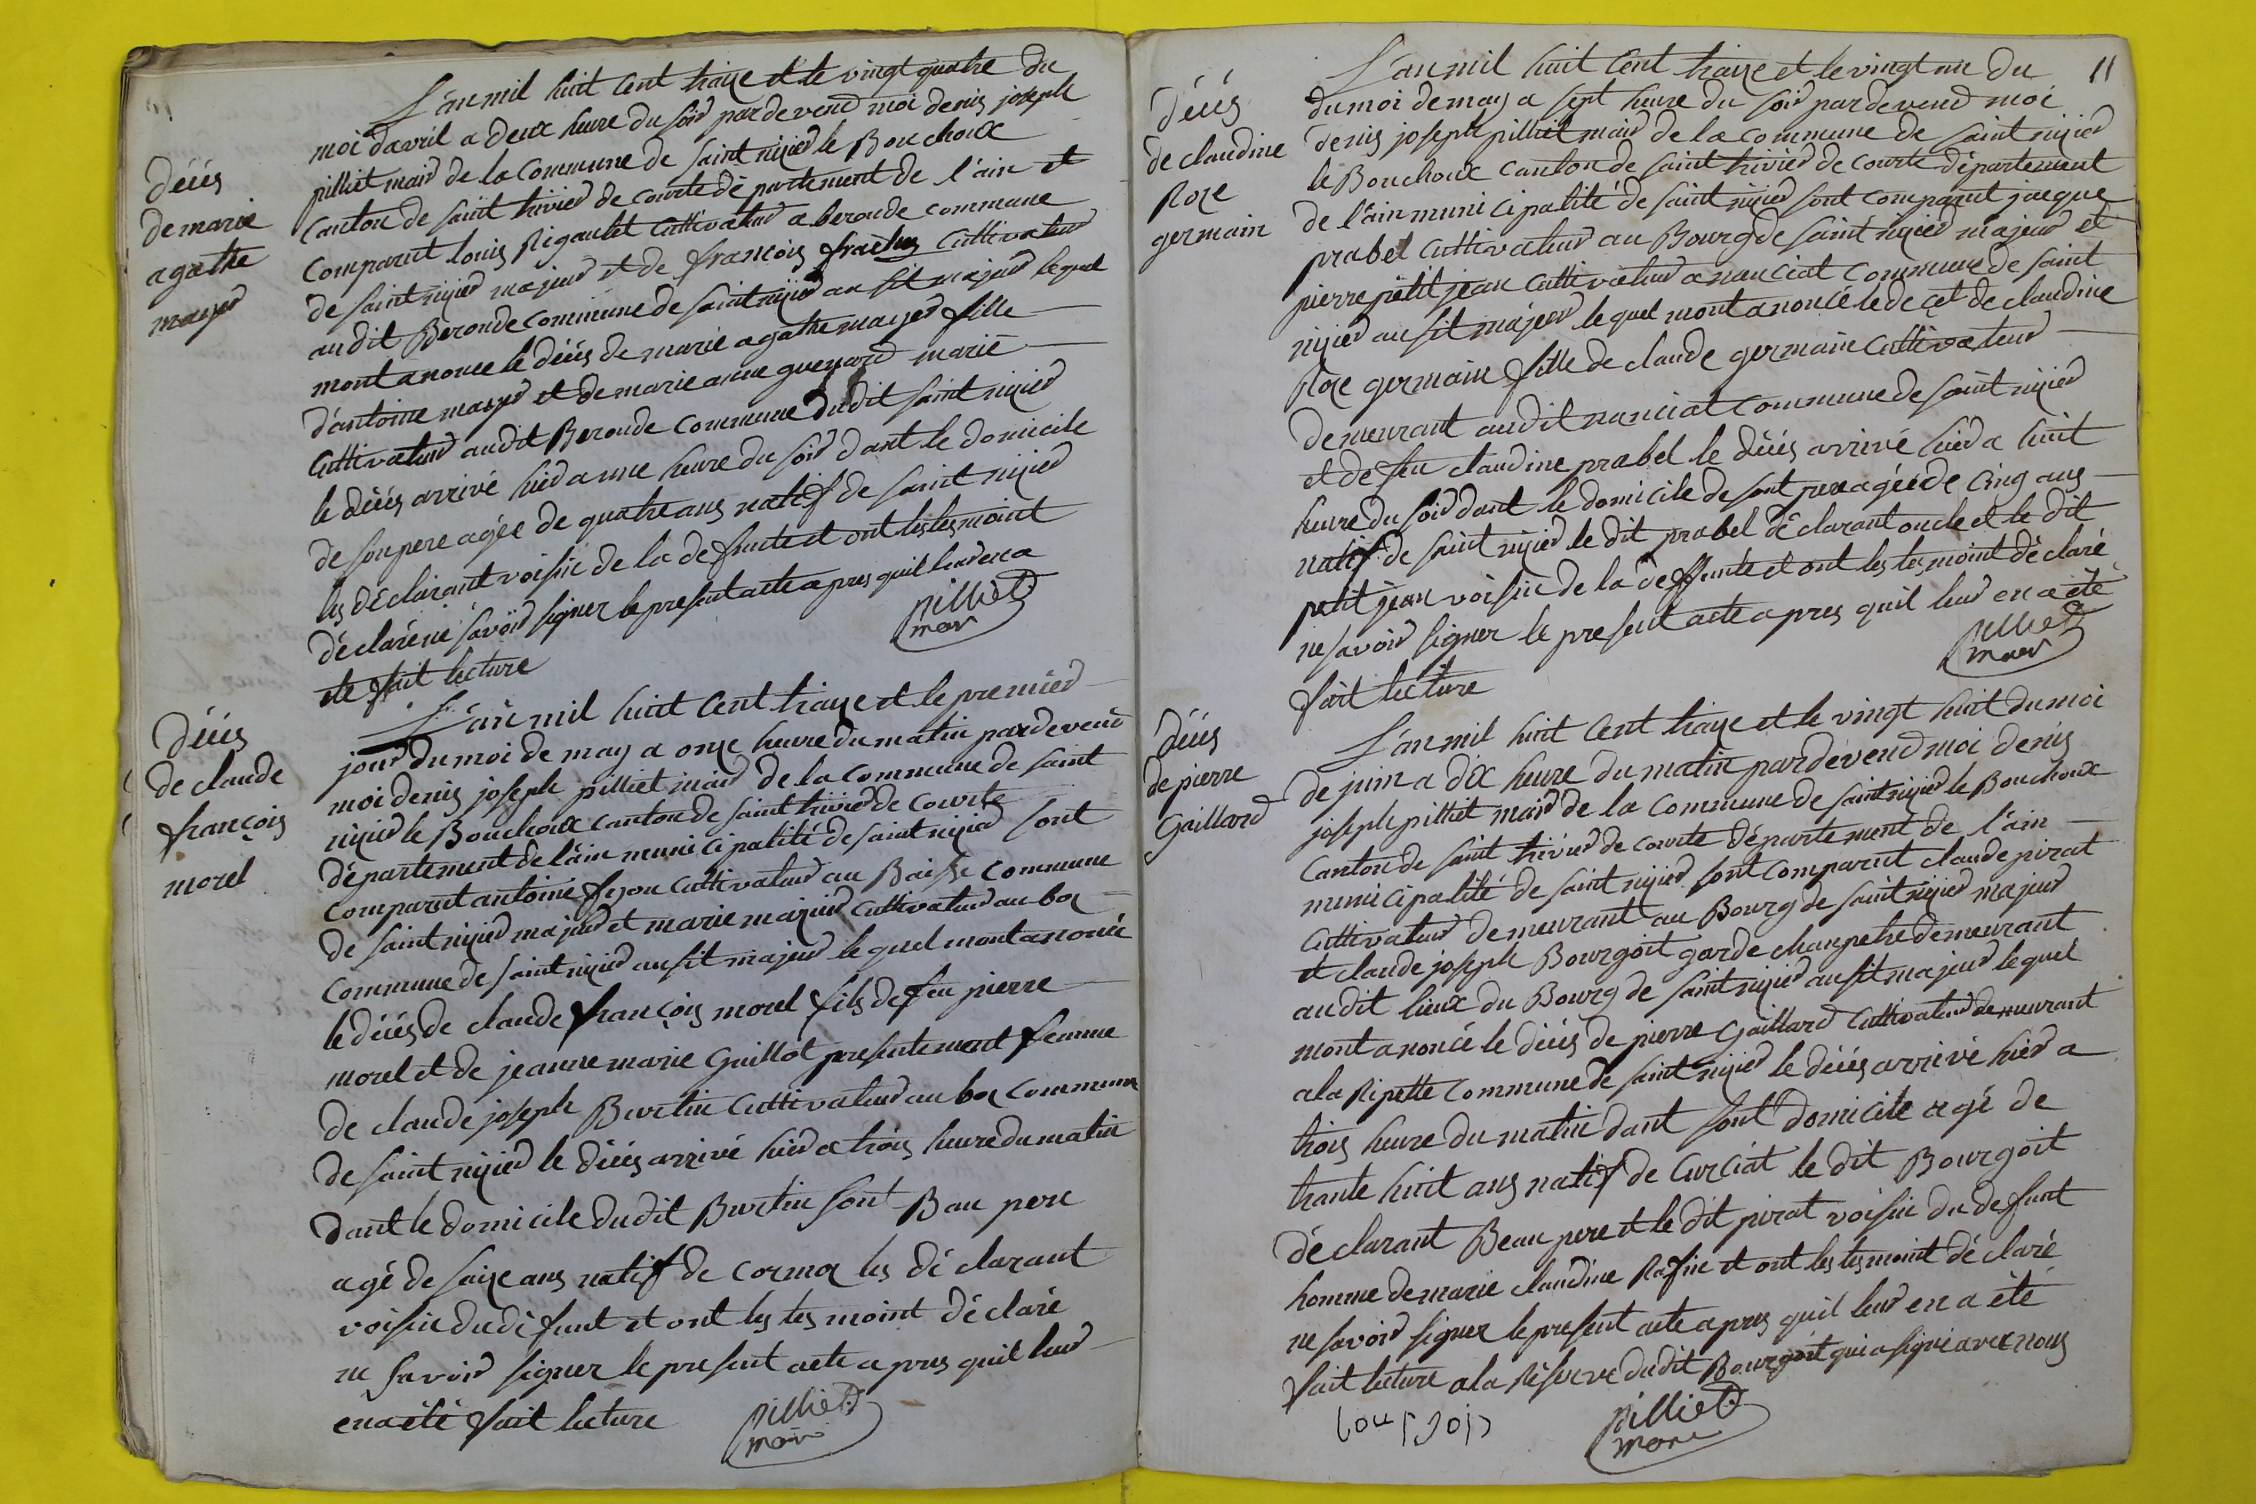 décés
de marie
agathe
mayer
L'an mil huit cent traize et le vingt quatre du
moi davril a deux heure du soir par devend moi denis joseph
pilliet mair de la commune de saint nizier le Bouchoux
canton de saint trivier de courte département de l'ain et
comparut louis Rigaulet cuttivateur a beronde commune
de saint nizier majeur et de françois cuttivateur
au dit Beronde commune de saint nizier au sit majeur le quel
mont anonce le décés de marie agathe mayer fille
d'antoine mayer et de marie anne guenard marié
cuttivateur au dit Beronde commune du dit saint nizier
le décés arrivé hier a une heure du soir dant le domicile
de son pere agée de quatre ans natif de saint nizier
les déclarant voisin de la defunte et ont les tesmoint
déclaré ne savoir signer le present acte apres quil leur en a
ete fait lecture
pilliet
mair
décés
de claude
françois
morel
L'an mil huit cent traize et le premier
jour du moi de may a onze heure du matin par devend
moi denis joseph pilliet mair de la commune de saint
nizier le Bouchoux canton de saint trivier de courte
département de lain municipalité de saint nizier sont
comparut antoine fyon cuttivateur au Baisse commune
de saint nizier majeur et marie mazuir cuttivateur au boz
commune de saint nizier au sit majeur le quel mont anoncé
le décés de claude françois morel fils de feu pierre
morel et de jeanne marie Guillot presentement femme
de claude joseph Burtin cuttivateur au boz commune
de saint nizier le décés arrivé hier a trois heure du matin
dant le domicile du dit Burtin sont Bau pere
agé de saize ans natif de cormoz les déclarant
voisin du defunt et ont les tesmoint déclaré
ne savoir signer le present acte apres quil leur
en a été fait lecture
pilliet
mair
11
décés
de claudine
Roze
germain
L'an mil huit cent traize et le vingt un du
du moi de may a sept heure du soir par devend moi
denis joseph pilliet mair de la commune de saint nizier
le Bouchoux canton de saint trivier de courte département
de l'ain municipalité de saint nizier sont comparut jacque
prabel cuttivateur au Bourg de saint nizier majeur et
pierre petit jean cuttivateur a nanciat commune de saint
nizier au sit majeur le quel mont anoncé le decet de claudine
Roze germain fille de claude germain cuttivateur
demeurant au dit nanciat commune de saint nizier
et de feu claudine prabel le décés arrivé hier a huit
heure du soir dant le domicile de sont pere agée de cinq ans
natif de saint nizier le dit prabel déclarant oncle et le dit
petit jean voisin de la deffunte et ont les tesmoint déclaré
ne savoir signer le present acte apres quil leur en a été
fait lecture
pilliet
mair
décés
de pierre
Gaillard
L'an mil huit cent traize et le vingt huit du moi
de juin a dix heure du matin par devend moi denis
joseph pilliet mair de la commune de saint nizier le Bouchoux
canton de saint trivier de courte département de l'ain
municipalité de saint nizier sont comparut claude pirat
cuttivateur demeurant au Bourg de saint nizier majeur
et claude joseph Bourgoit garde champetre demeurant
au dit lieux du Bourg de saint nizier au sit majeur le quel
mont anoncé le décés de pierre Gaillard cuttivateur demeurant
a la Ripette commune de saint nizier le décés arrivé hier a
trois heure du matin dant sont domicile agé de
trante huit ans natif de curciat le dit Bourgoit
déclarant Beau pere et le dit pirat voisin du defunt
homme de marie claudine Rafin et ont les tesmoint déclaré
ne savoir signer le present acte apres quil leur en a été
fait lecture a la Réserve du dit Bourgoit qui a signé avec nous
pilliet
mair